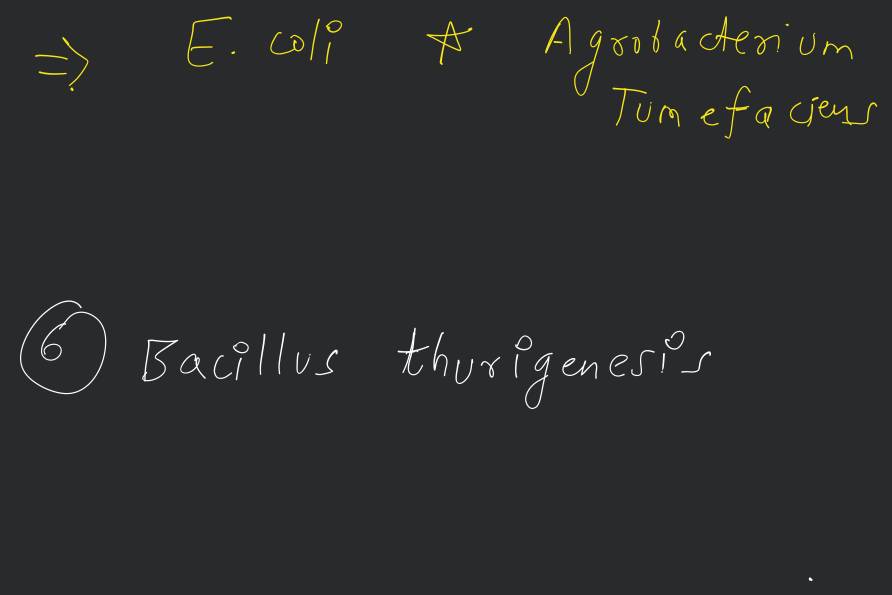 ⇒ E. coli ☆ Agrobacterium
Tumefaciens
⑥ Bacillus thurigenesis